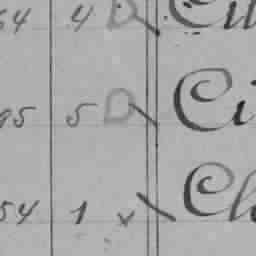 64 4 D Cu
95 5 D Ci
54 1 x Ch